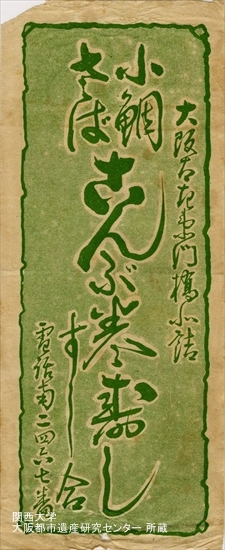 大阪太左衛門橋北詰
小鯛
さば
こんぶ巻寿し
すし合
電話南二四六七番
関西大学
大阪都市遺産研究センター 所蔵